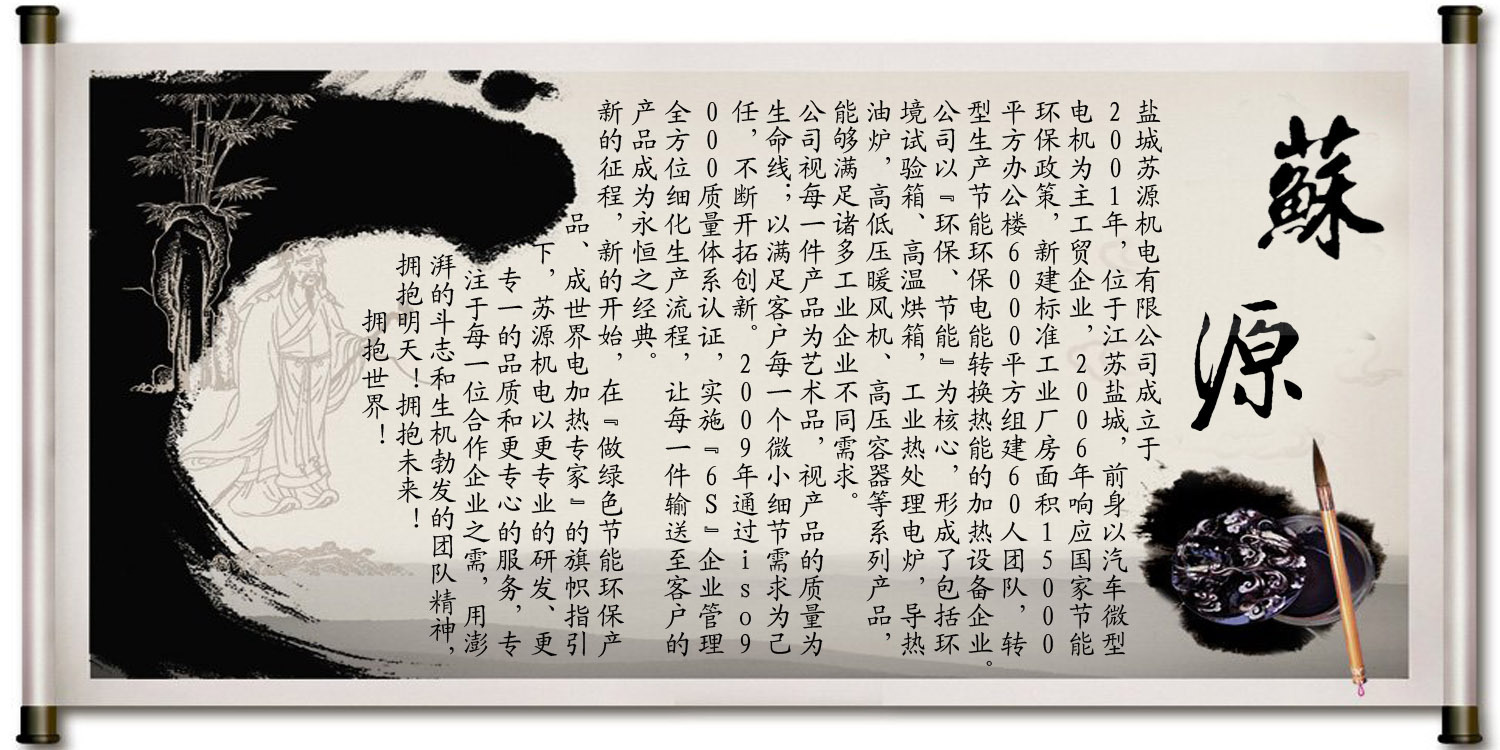 蘇
源
盐城苏源机电有限公司成立于
2001年，位于江苏盐城，前身以汽车微型
电机为主工贸企业，2006年响应国家节能
环保政策，新建标准工业厂房面积15000
平方办公楼6000平方组建60人团队，转
型生产节能环保电能转换热能的加热设备企业。
公司以『环保、节能』为核心，形成了包括环
境试验箱、高温烘箱，工业热处理电炉，导热
油炉，高低压暖风机、高压容器等系列产品，
能够满足诸多工业企业不同需求。
公司视每一件产品为艺术品，视产品的质量为
生命线；以满足客户每一个微小细节需求为己
任，不断开拓创新。2009年通过iso9
000质量体系认证，实施『6S』企业管理
全方位细化生产流程，让每一件输送至客户的
产品成为永恒之经典。
新的征程，新的开始，在『做绿色节能环保产
品、成世界电加热专家』的旗帜指引
下，苏源机电以更专业的研发、更
专一的品质和更专心的服务，专
注于每一位合作企业之需，用澎
湃的斗志和生机勃发的团队精神，
拥抱明天！拥抱未来！
拥抱世界！